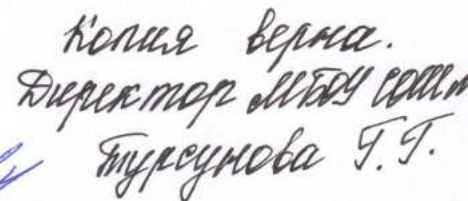 Копия верна.
Директор МБОУ СОШ
Турсунова Г.Г.